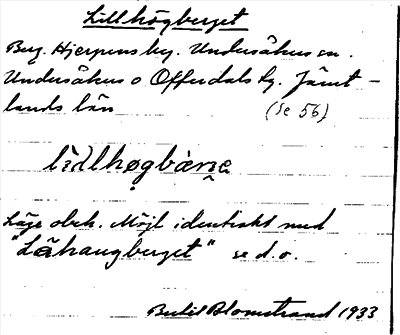 Lillhögberget
Berg. Hjerpens by. Undersåkers sn.
Undersåkers o Offerdals tg. Jämt-
lands län (Se 56)
lìdlhøgbàrıe
Läge obek. Möjl identiskt med
"Låhaugberget" se d.o.
Bertil Blomstrand 1933